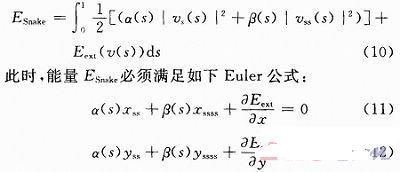 E_Snake = ∫₀¹ 1/2 [(α(s) | v_s(s) |² + β(s) | v_ss(s) |²)] +
E_ext(v(s))ds (10)
此时,能量 E_Snake 必须满足如下 Euler 公式:
α(s)x_ss + β(s)x_ssss + ∂E_ext/∂x = 0 (11)
α(s)y_ss + β(s)y_ssss + ∂E/∂y 2)